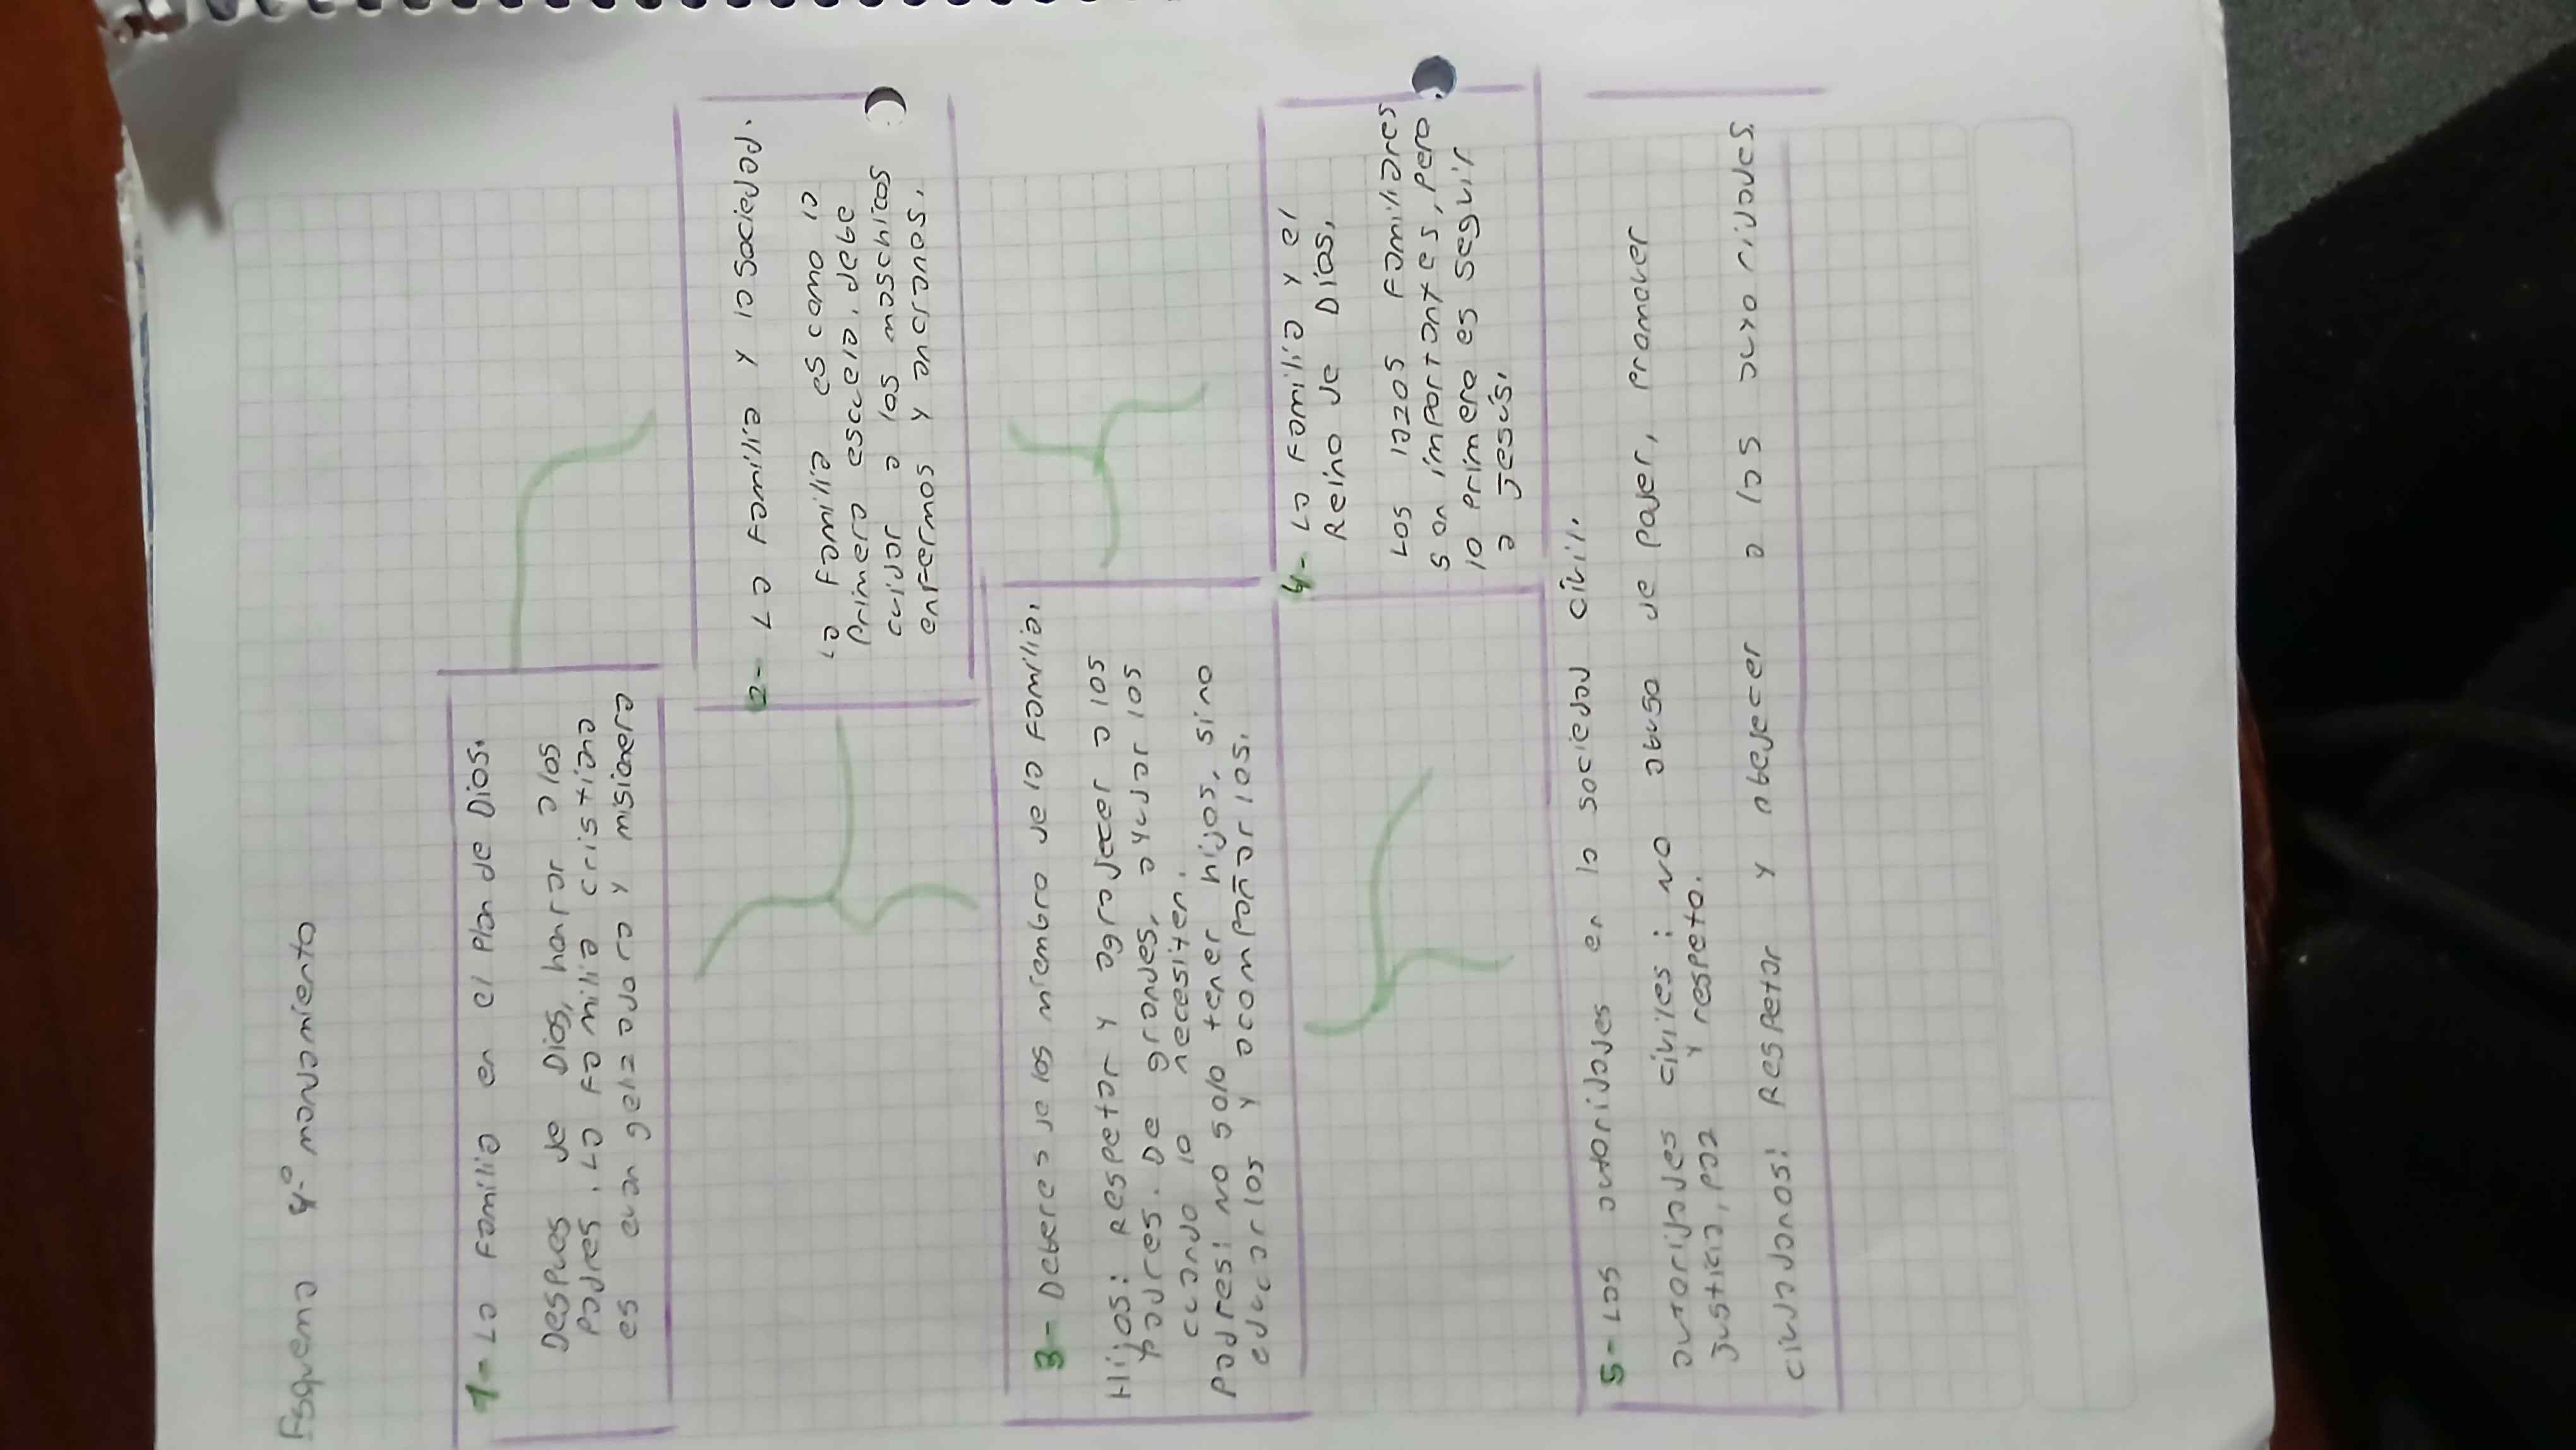 Esquema 4º mandamiento
1- La Familia en el Plan de Dios.
Despues de Dios, honrar a los
Padres. La Familia cristiana
es evangelizadora y misionera
2- La Familia y la sociedad.
La Familia es como la
Primera escuela. debe
cuidar a los mas chicos
enfermos y ancianos.
3- Deberes de los miembro de la Familia.
Hijos: Respetar y agradecer a los
padres. De grandes, ayudar los
cuando lo necesiten.
Padres: no solo tener hijos, sino
educarlos y acompañarlos.
4- La Familia y el
Reino de Dios.
Los lazos Familiares
son importantes, pero
lo primero es seguir
a Jesús.
5- Las autoridades en la sociedad civil.
autoridades civiles: no abuso de poder, promover
Justicia, paz y respeto.
ciudadanos: Respetar y obedecer a las autoridades.